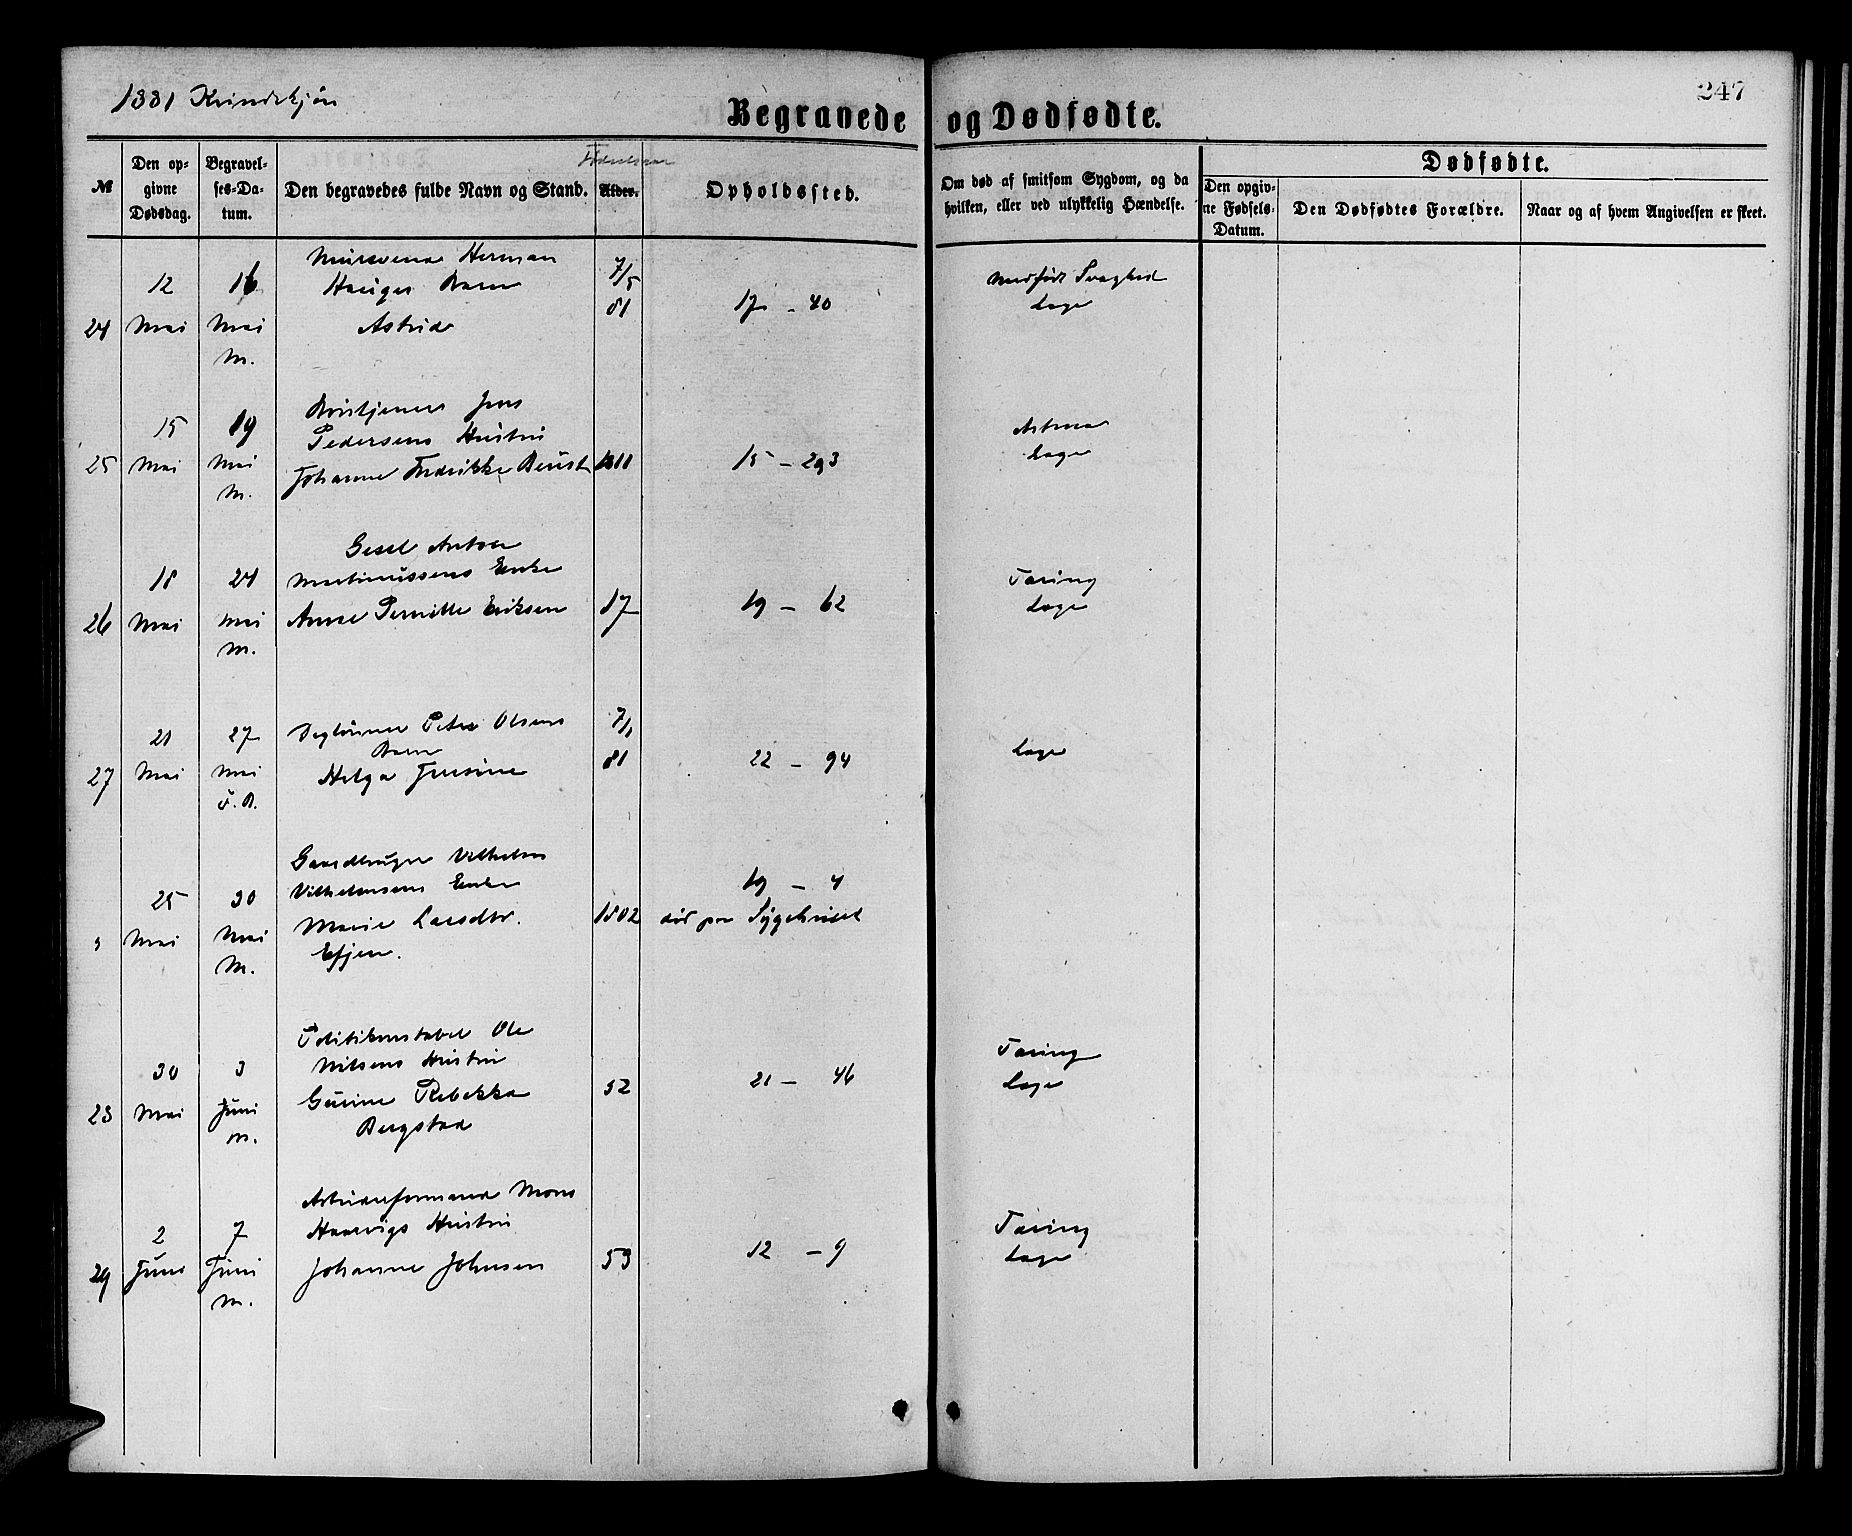 1881 Kvindekjøn
247
Begravede og Dødfødte.
№
Den opgivne Dødsdag.
Begravelses-Datum.
Den begravedes fulde Navn og Stand.
Fødselsaar
Alder.
Opholdssted.
Om død af smitsom Sygdom, og da hvilken, eller ved ulykkelig Hændelse.
Dødfødte.
Den opgivne Fødsels-Datum.
Den Dødfødtes Forældre.
Naar og af hvem Angivelsen er skeet.
24
12 Mai
16 Mai M.
Mursvend Herman
Hauges Barn
Astrid
7/5 81
17 - 40
Medfødt Svaghed
Læge
25
15 Mai
19 Mai M.
Pedersens Hustru
Johanne Fredrikke
1811
15 - 293
Astma
Læge
26
18 Mai
24 Mai M.
Gesel Anton
Martinussens Enke
Anne Pernille Eriksen
17
19 - 62
Tæring
Læge
27
21 Mai
27 Mai F.B.
Daglønner Peter Olsens
Barn
Helga
7/1 81
22 - 94
Læge
25 Mai
30 Mai M.
Gaardbruger Vilhelm
Vilhelmsens Enke
Marie Larsdtr.
1802
19 - 4
død paa Sygehuset
28
30 Mai
3 Juni M.
Politikonstabel Ole
Nilsens Hustru
Gurine Rebekka
Bergstad
52
21 - 46
Tæring
Læge
29
2 Juni
7 Juni M.
Arbeiderformand Mons
Haarvigs Hustru
Johanne Johnsen
53
12 - 9
Tæring
Læge